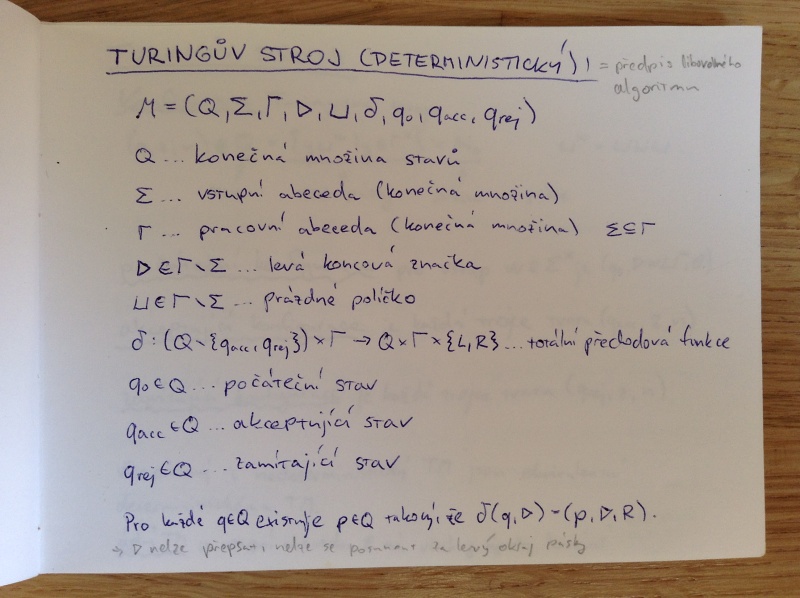 TURINGŮV STROJ (DETERMINISTICKÝ) ! = předpis libovolného
algoritmu
M = (Q, Σ, Γ, ▷, ⊔, δ, q0, qacc, qrej)
Q ... konečná množina stavů
Σ ... vstupní abeceda (konečná množina)
Γ ... pracovní abeceda (konečná množina) Σ⊆Γ
▷ ∈ Γ∖Σ ... levá koncová značka
⊔ ∈ Γ∖Σ ... prázdné políčko
δ : (Q∖{qacc, qrej}) × Γ → Q × Γ × {L, R} ... totální přechodová funkce
q0 ∈ Q ... počáteční stav
qacc ∈ Q ... akceptující stav
qrej ∈ Q ... zamítající stav
Pro každé q∈Q existuje p∈Q takový, že δ(q, ▷) = (p, ▷, R).
→ ▷ nelze přepsat, nelze se posunout za levý okraj pásky